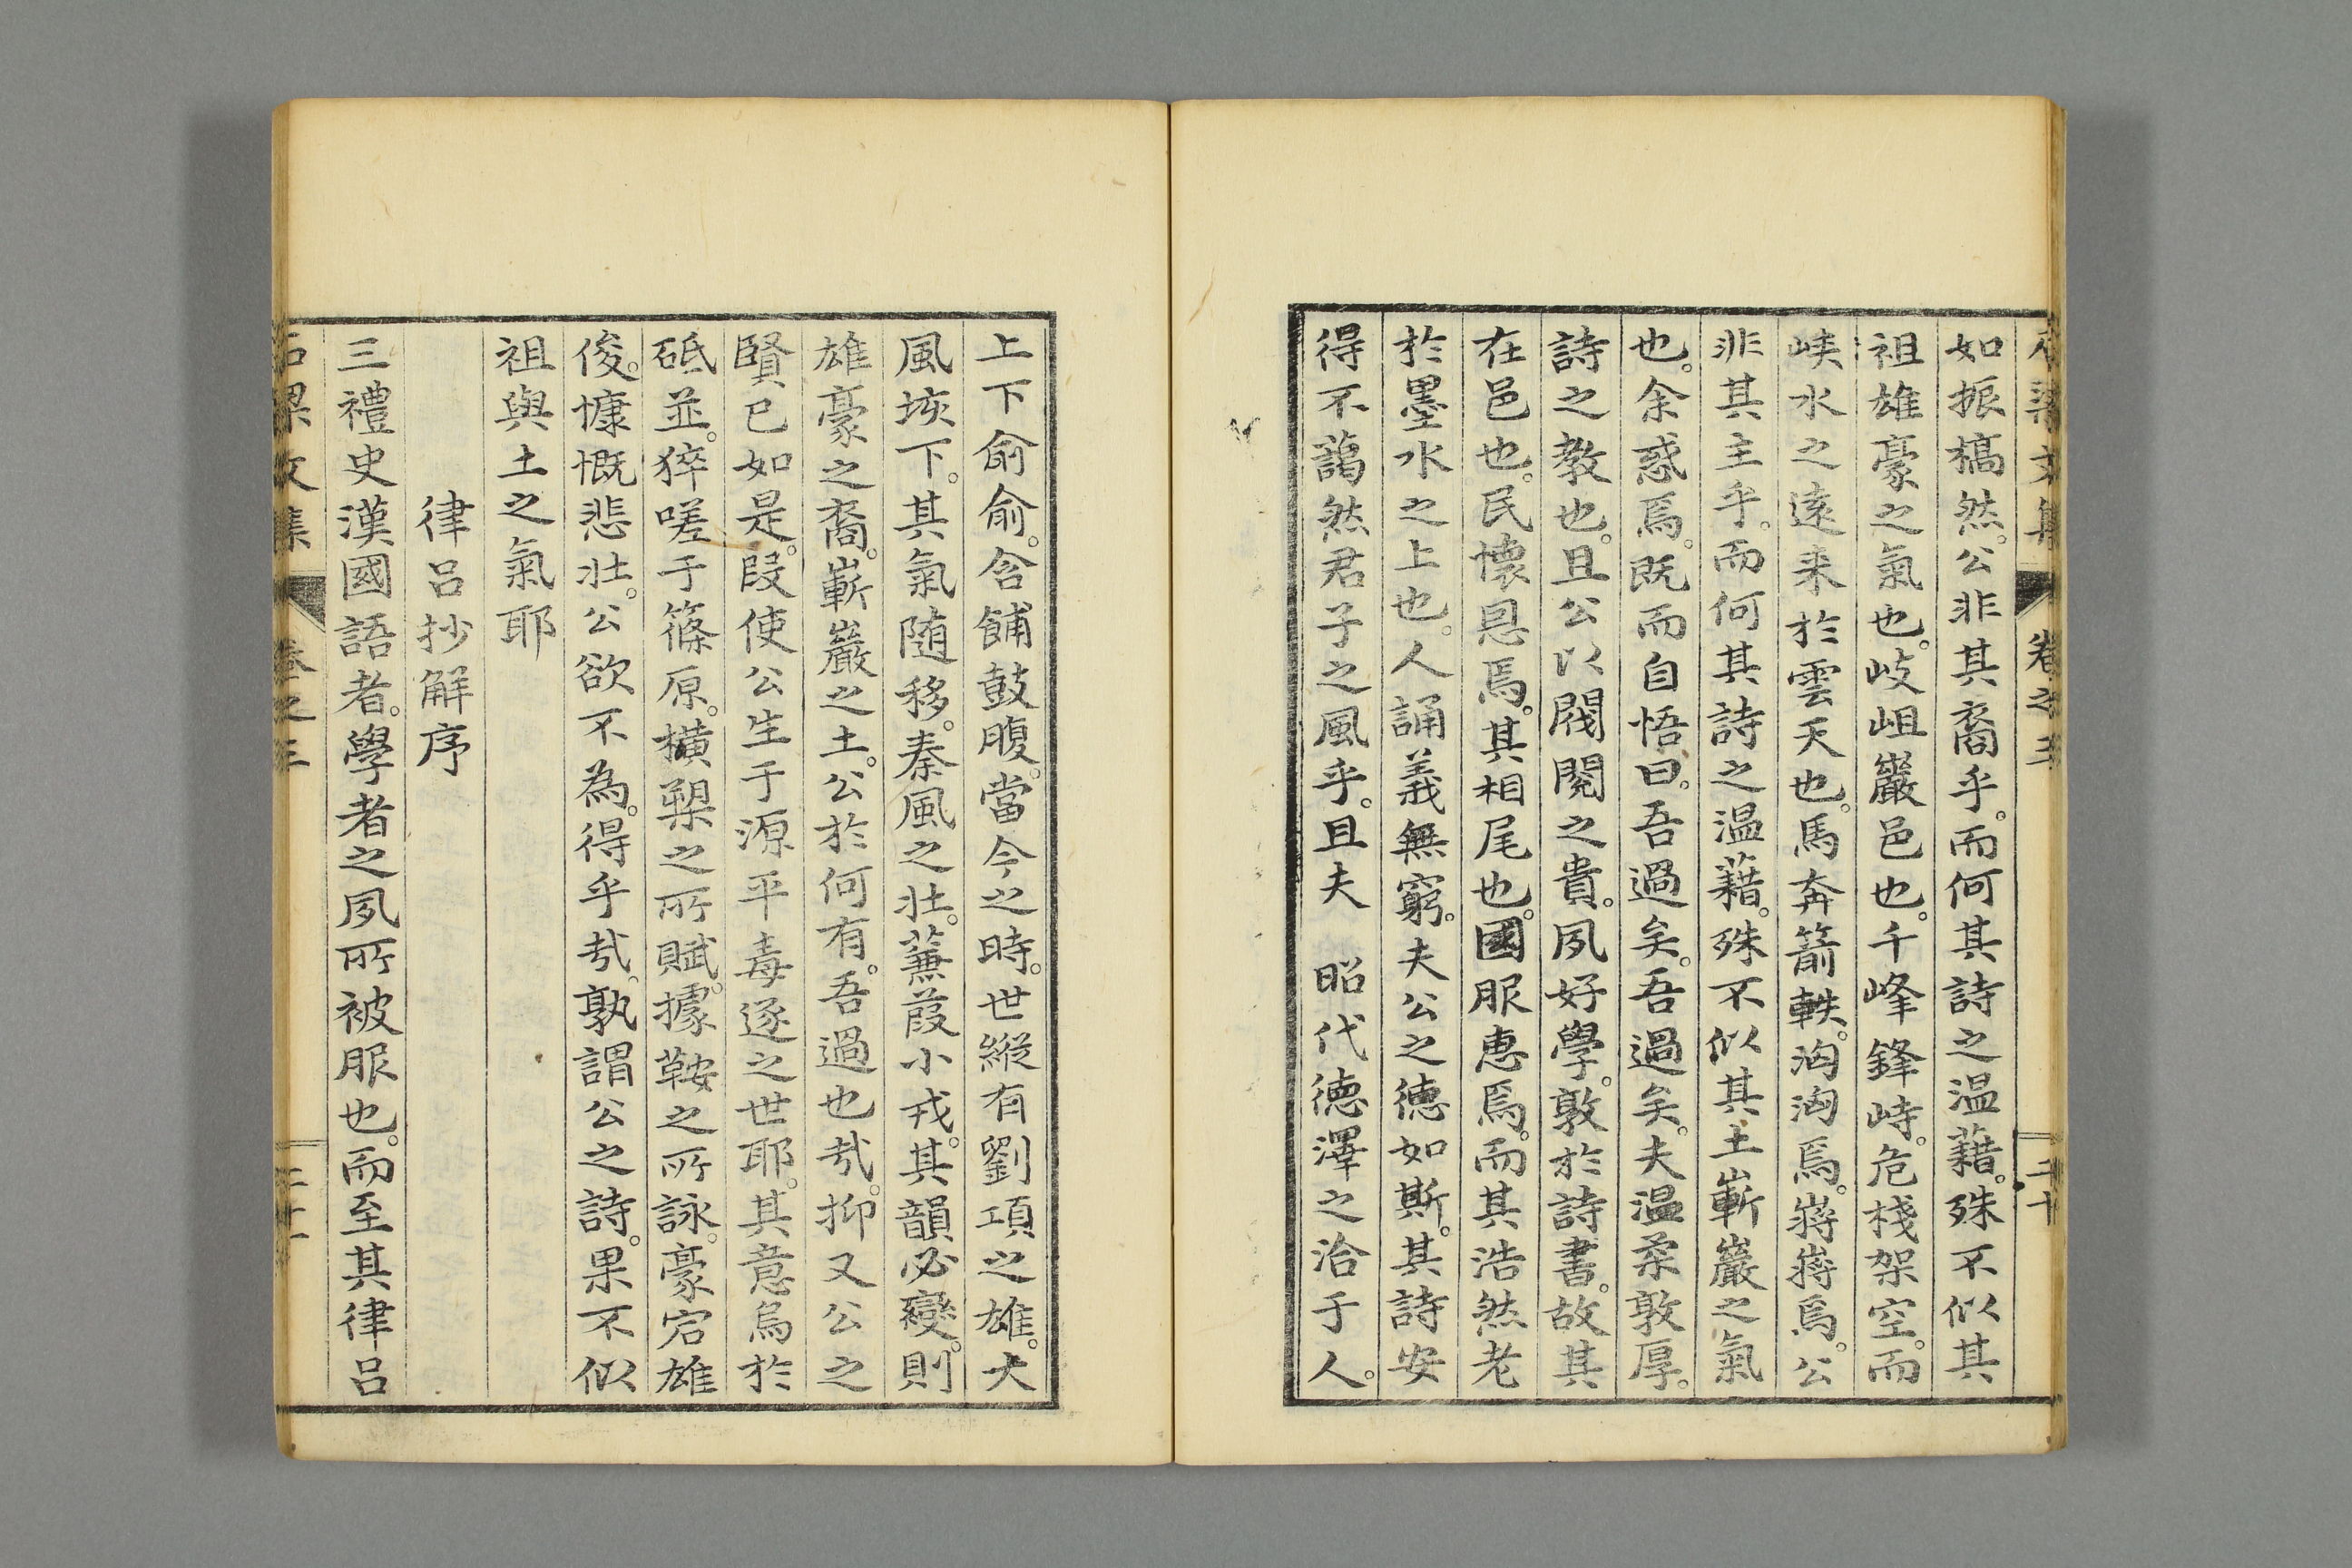 如振槁然。公非其裔乎。而何其詩之温藉。殊不似其
祖雄豪之氣也。岐岨巖邑也。千峰鋒峙。危棧架空。而
峽水之遠来於雲天也。馬奔箭軼。洶洶焉。嶈嶈焉。公
非其主乎。而何其詩之温藉。殊不似其土嶄巖之氣
也。余惑焉。既而自悟曰。吾過矣。吾過矣。夫温柔敦厚。
詩之教也。且公以閥閲之貴。夙好學。敦於詩書。故其
在邑也。民懷恩焉。其相尾也。國服恵焉。而其浩然老
於墨水之上也。人誦義無窮。夫公之徳如斯。其詩安
得不藹然君子之風乎。且夫 昭代徳澤之洽于人。
上下俞俞。含餔鼓腹。當今之時。世縦有劉項之雄。大
風垓下。其氣随移。秦風之壮。蒹葭小戎。其韻必變。則
雄豪之裔。嶄巖之土。公於何有。吾過也㢤。抑又公之
賢已如是。叚使公生于源平毒逐之世耶。其意烏於
砥並。猝嗟于篠原。横槊之所賦。據鞍之所詠。豪宕雄
俊。慷慨悲壮。公欲不為。得乎㢤。孰謂公之詩。果不似
祖與土之氣耶
律呂抄解序
三禮史漢國語者。學者之夙所被服也。而至其律呂
石梁文集 卷之三